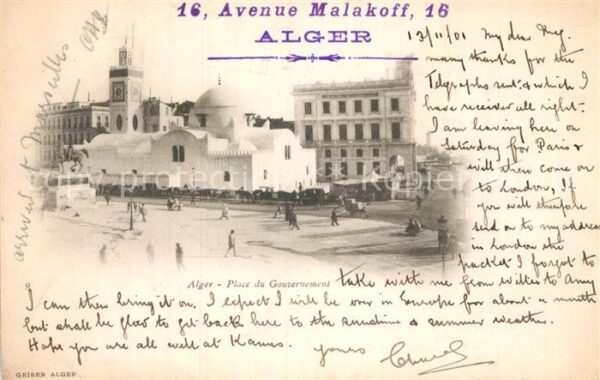 16, Avenue Malakoff, 16
ALGER
13/11/01 My dear
many thanks for the
Telegraphs sent & which I
have received all right.
I am leaving here on
Saturday for Paris &
will then come on
to London, If
you will therefore
send on to my address
in London the
packet I forgot to
take with me from to
I can then bring it on. I expect I will be over in Europe for about a month
but shall be glad to get back here to the sunshine & summer weather.
Hope you are all well at
yours
Alger - Place du Gouvernement
GEISER ALGER.